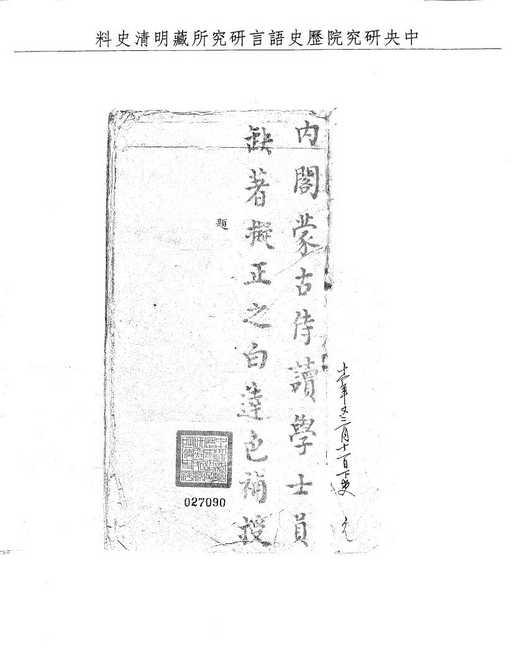 中央研究院歷史語言研究所藏明清史料
內閣蒙古侍讀學士員
缺著擬正之白達色補授
題
027090